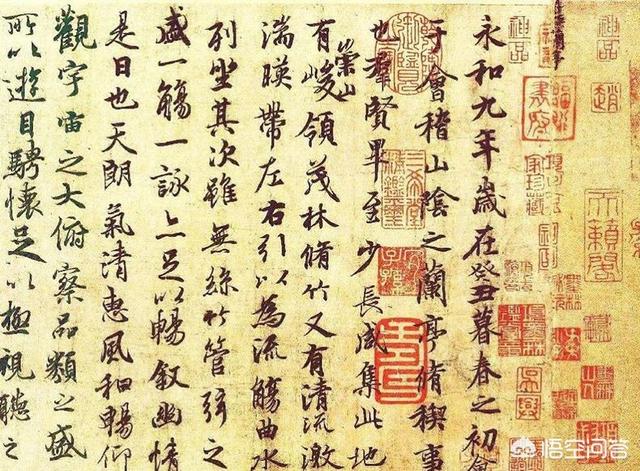 永和九年歲在癸丑暮春之初會
于會稽山陰之蘭亭脩稧事
也群賢畢至少長咸集此地
有崇山峻領茂林脩竹又有清流激
湍暎帶左右引以為流觴曲水
列坐其次雖無絲竹管弦之
盛一觴一詠亦足以暢敘幽情
是日也天朗氣清惠風和暢仰
觀宇宙之大俯察品類之盛
所以遊目騁懷足以極視聽之
神品
神品
趙
天籟閣
家珍藏
三希堂精鑑璽
宜子孫
悟空问答